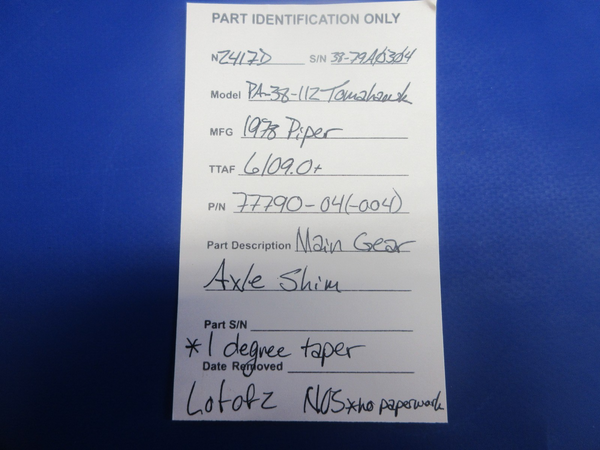 PART IDENTIFICATION ONLY
N2417D S/N 38-79A0304
Model PA-38-112 Tomahawk
MFG 1978 Piper
TTAF 6109.0+
P/N 77790-04(-004)
Part Description Main Gear
Axle Shim
Part S/N
*1 degree taper
Date Removed
Lot of 2 NOS *no paperwork